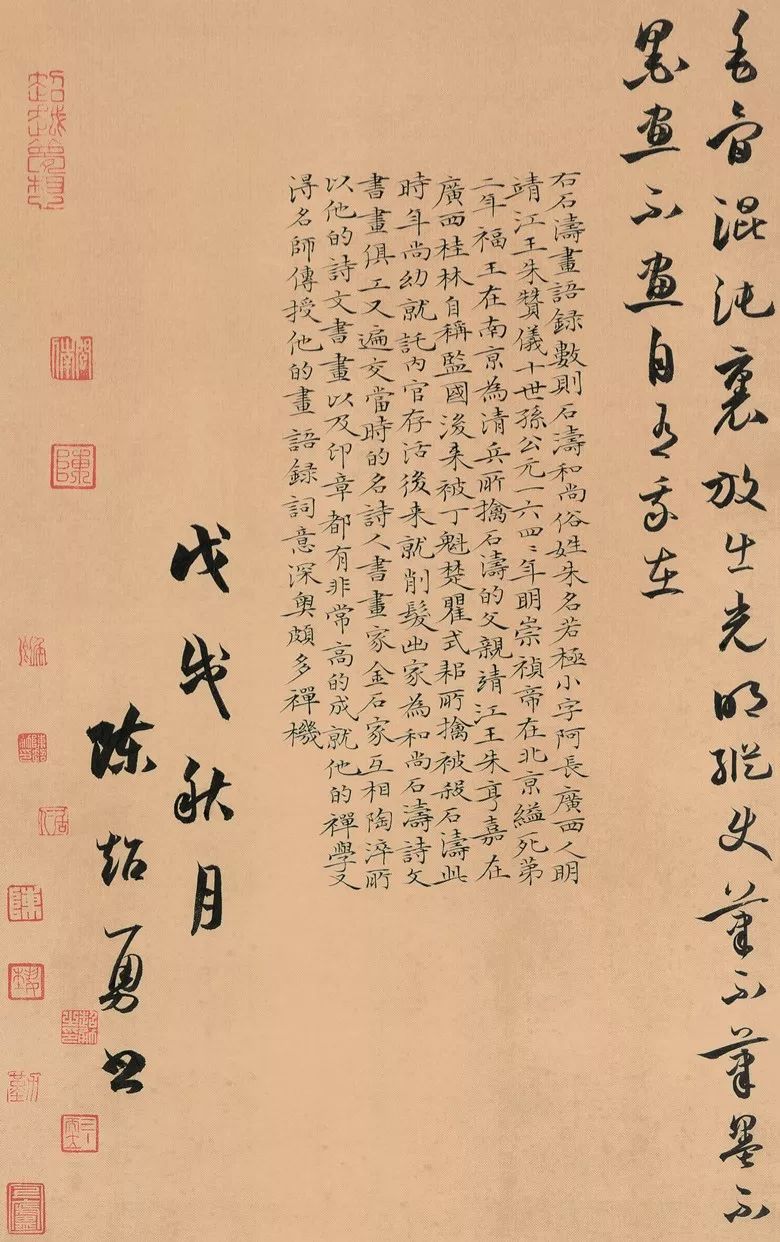 毛骨混沌裏放出光明縱使筆不筆墨不
墨畫不畫自有我在
右石濤畫語録數則石濤和尚俗姓朱名若極小字阿長廣西人明
靖江王朱贊儀十世孫公元一六四〻年明崇禎帝在北京縊死弟
二年福王在南京為清兵所擒石濤的父親靖江王朱亨嘉在
廣西桂林自稱監國後来被丁魁楚瞿式耜所擒被殺石濤此
時年尚幼就託内官存活後来就削髮出家為和尚石濤詩文
書畫俱工又遍交當時的名詩人書畫家金石家互相陶淬所
以他的詩文書畫以及印章都有非常高的成就他的禪學又
得名師傳授他的畫語録詞意深奥頗多禪機
戊戌秋月
陈超勇书
超越夢想
陳
陳